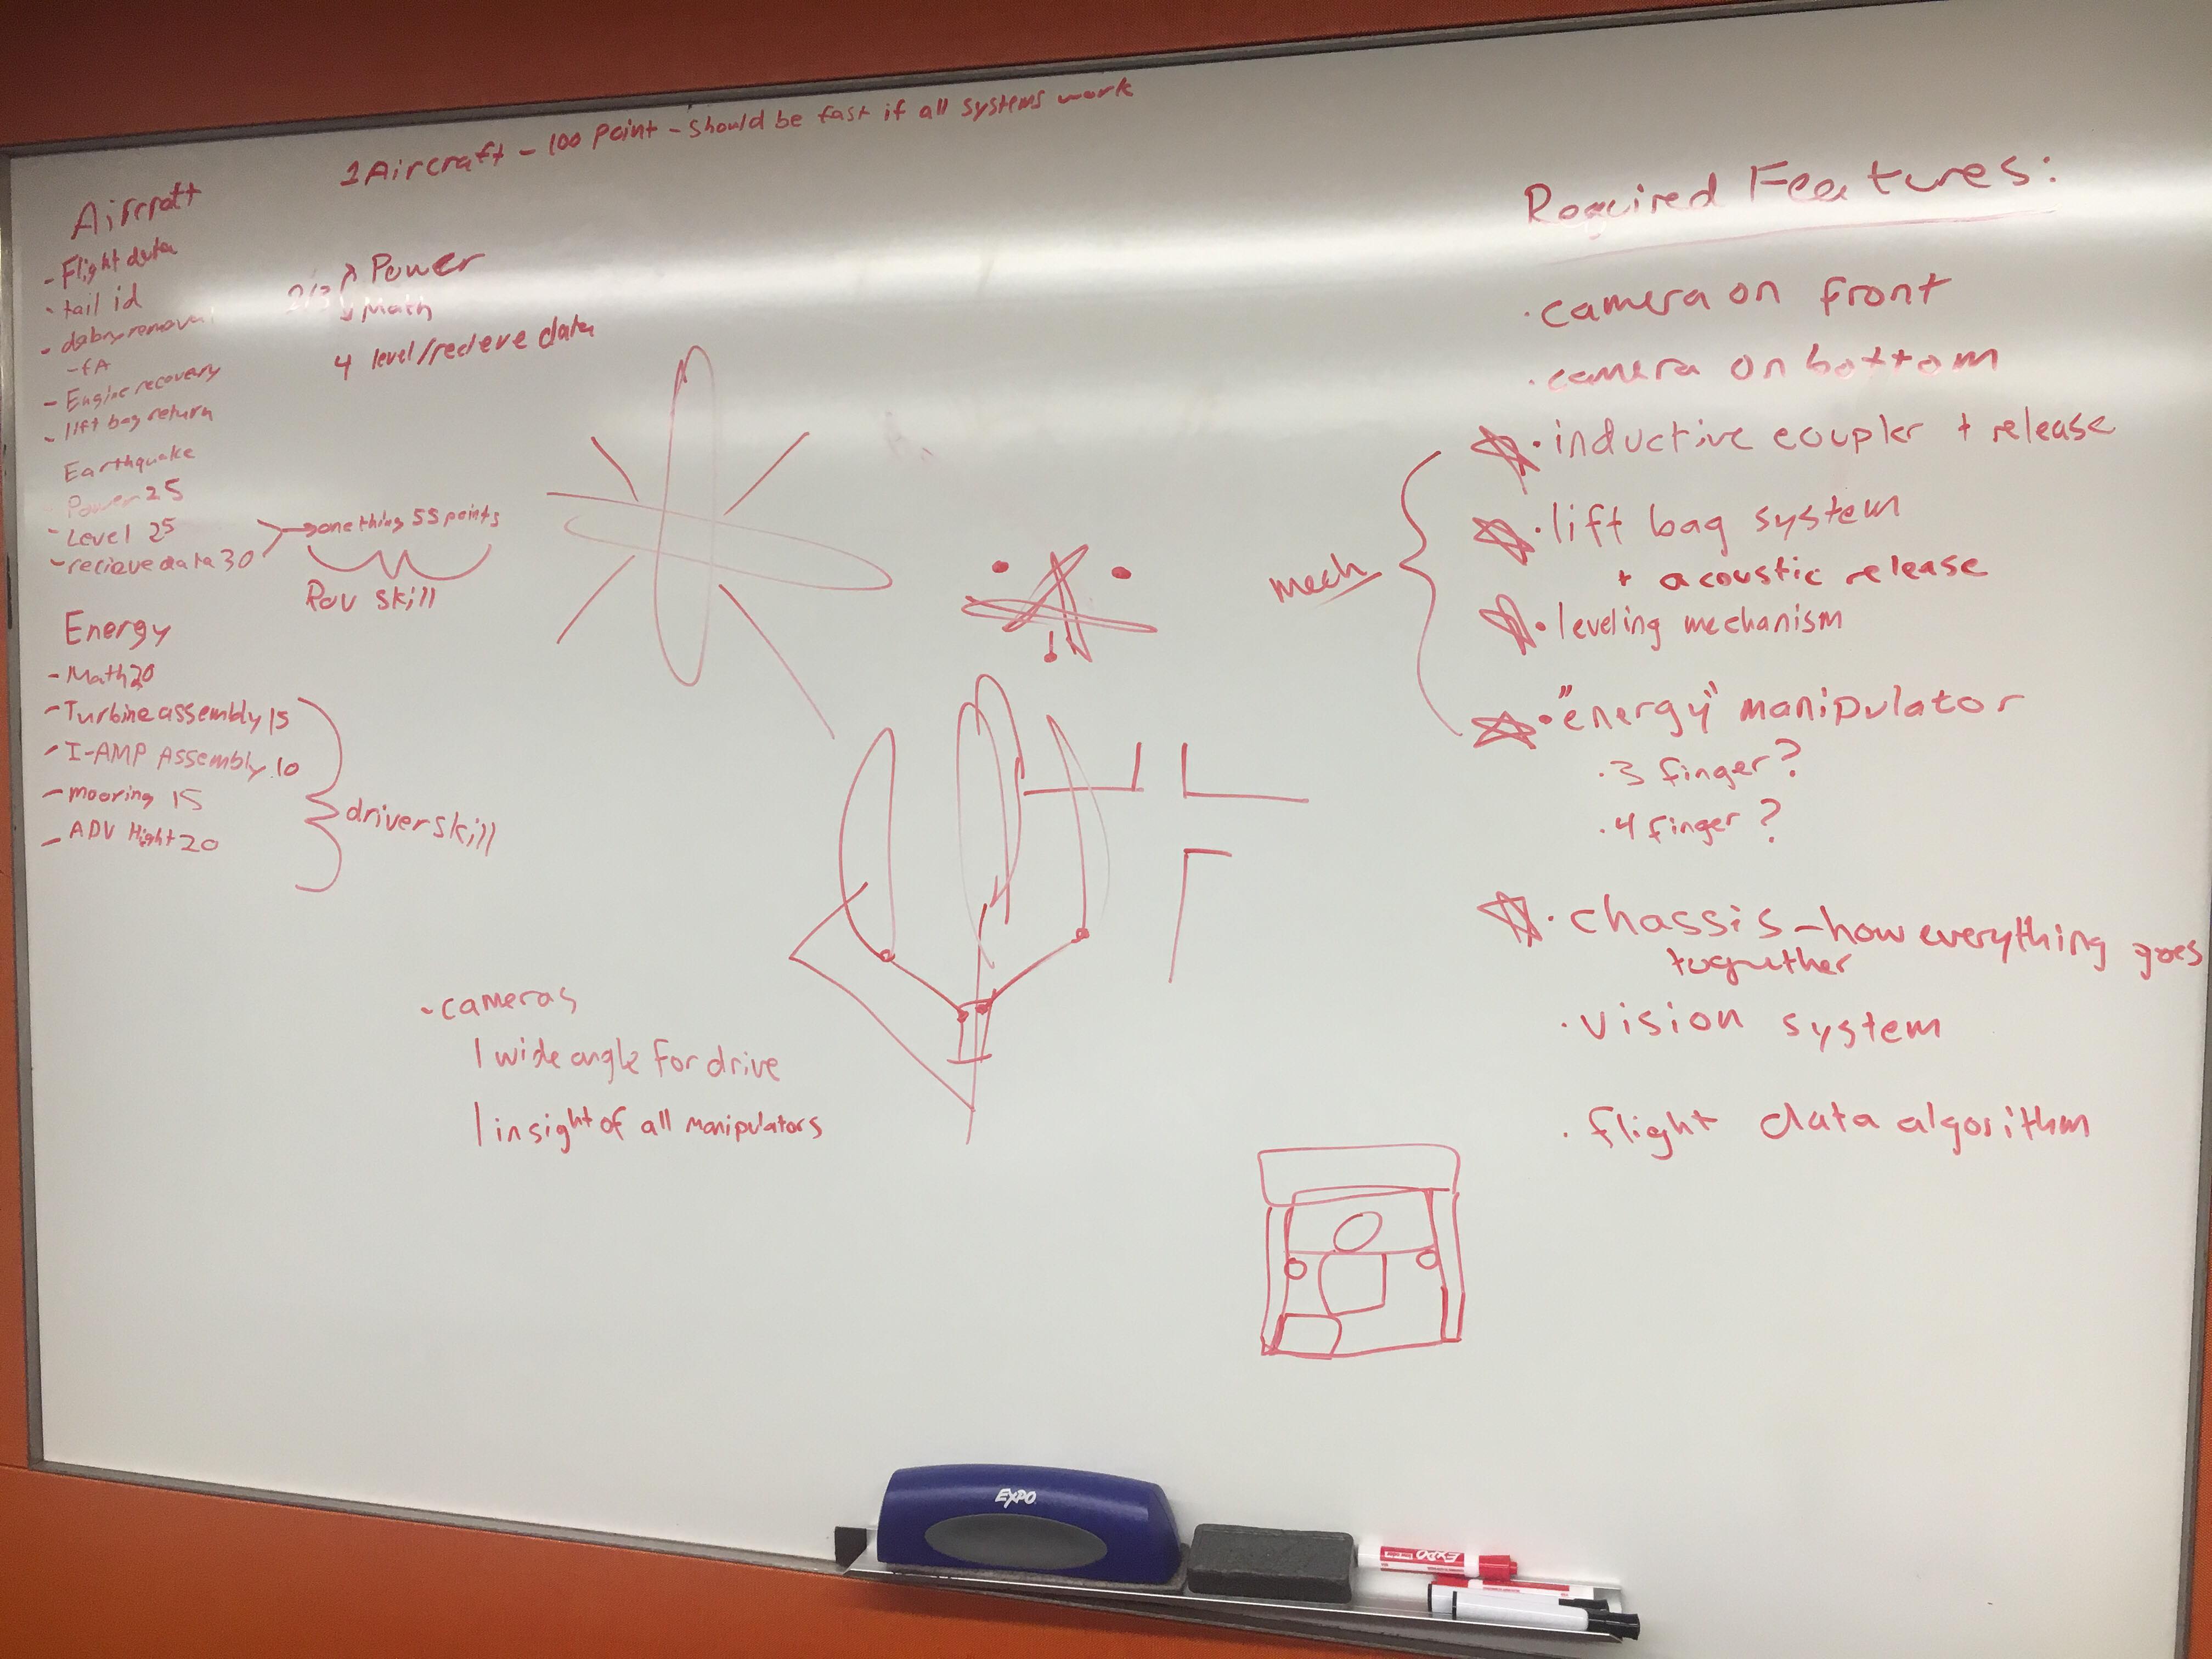 1 Aircraft - 100 point - should be fast if all systems work
Aircraft
- Flight data
- tail id
- debry removal
- Engine recovery
- lift bag return
Earthquake
Power 25
- Level 25
- recieve data 30
something 55 points
Rov skill
Energy
- Math 20
- Turbine assembly 15
- I-AMP Assembly 10
- mooring 15
- ADV Hight 20
driver skill
2/3
Power
Math
4 level/recieve data
- cameras
1 wide angle for drive
1 insight of all manipulators
mech
Required Features:
· camera on front
· camera on bottom
· inductive coupler + release
· lift bag system
+ acoustic release
· leveling mechanism
· "energy" manipulator
· 3 finger?
· 4 finger?
· chassis - how everything goes
together
· vision system
· flight data algorithm
EXPO
EXPO